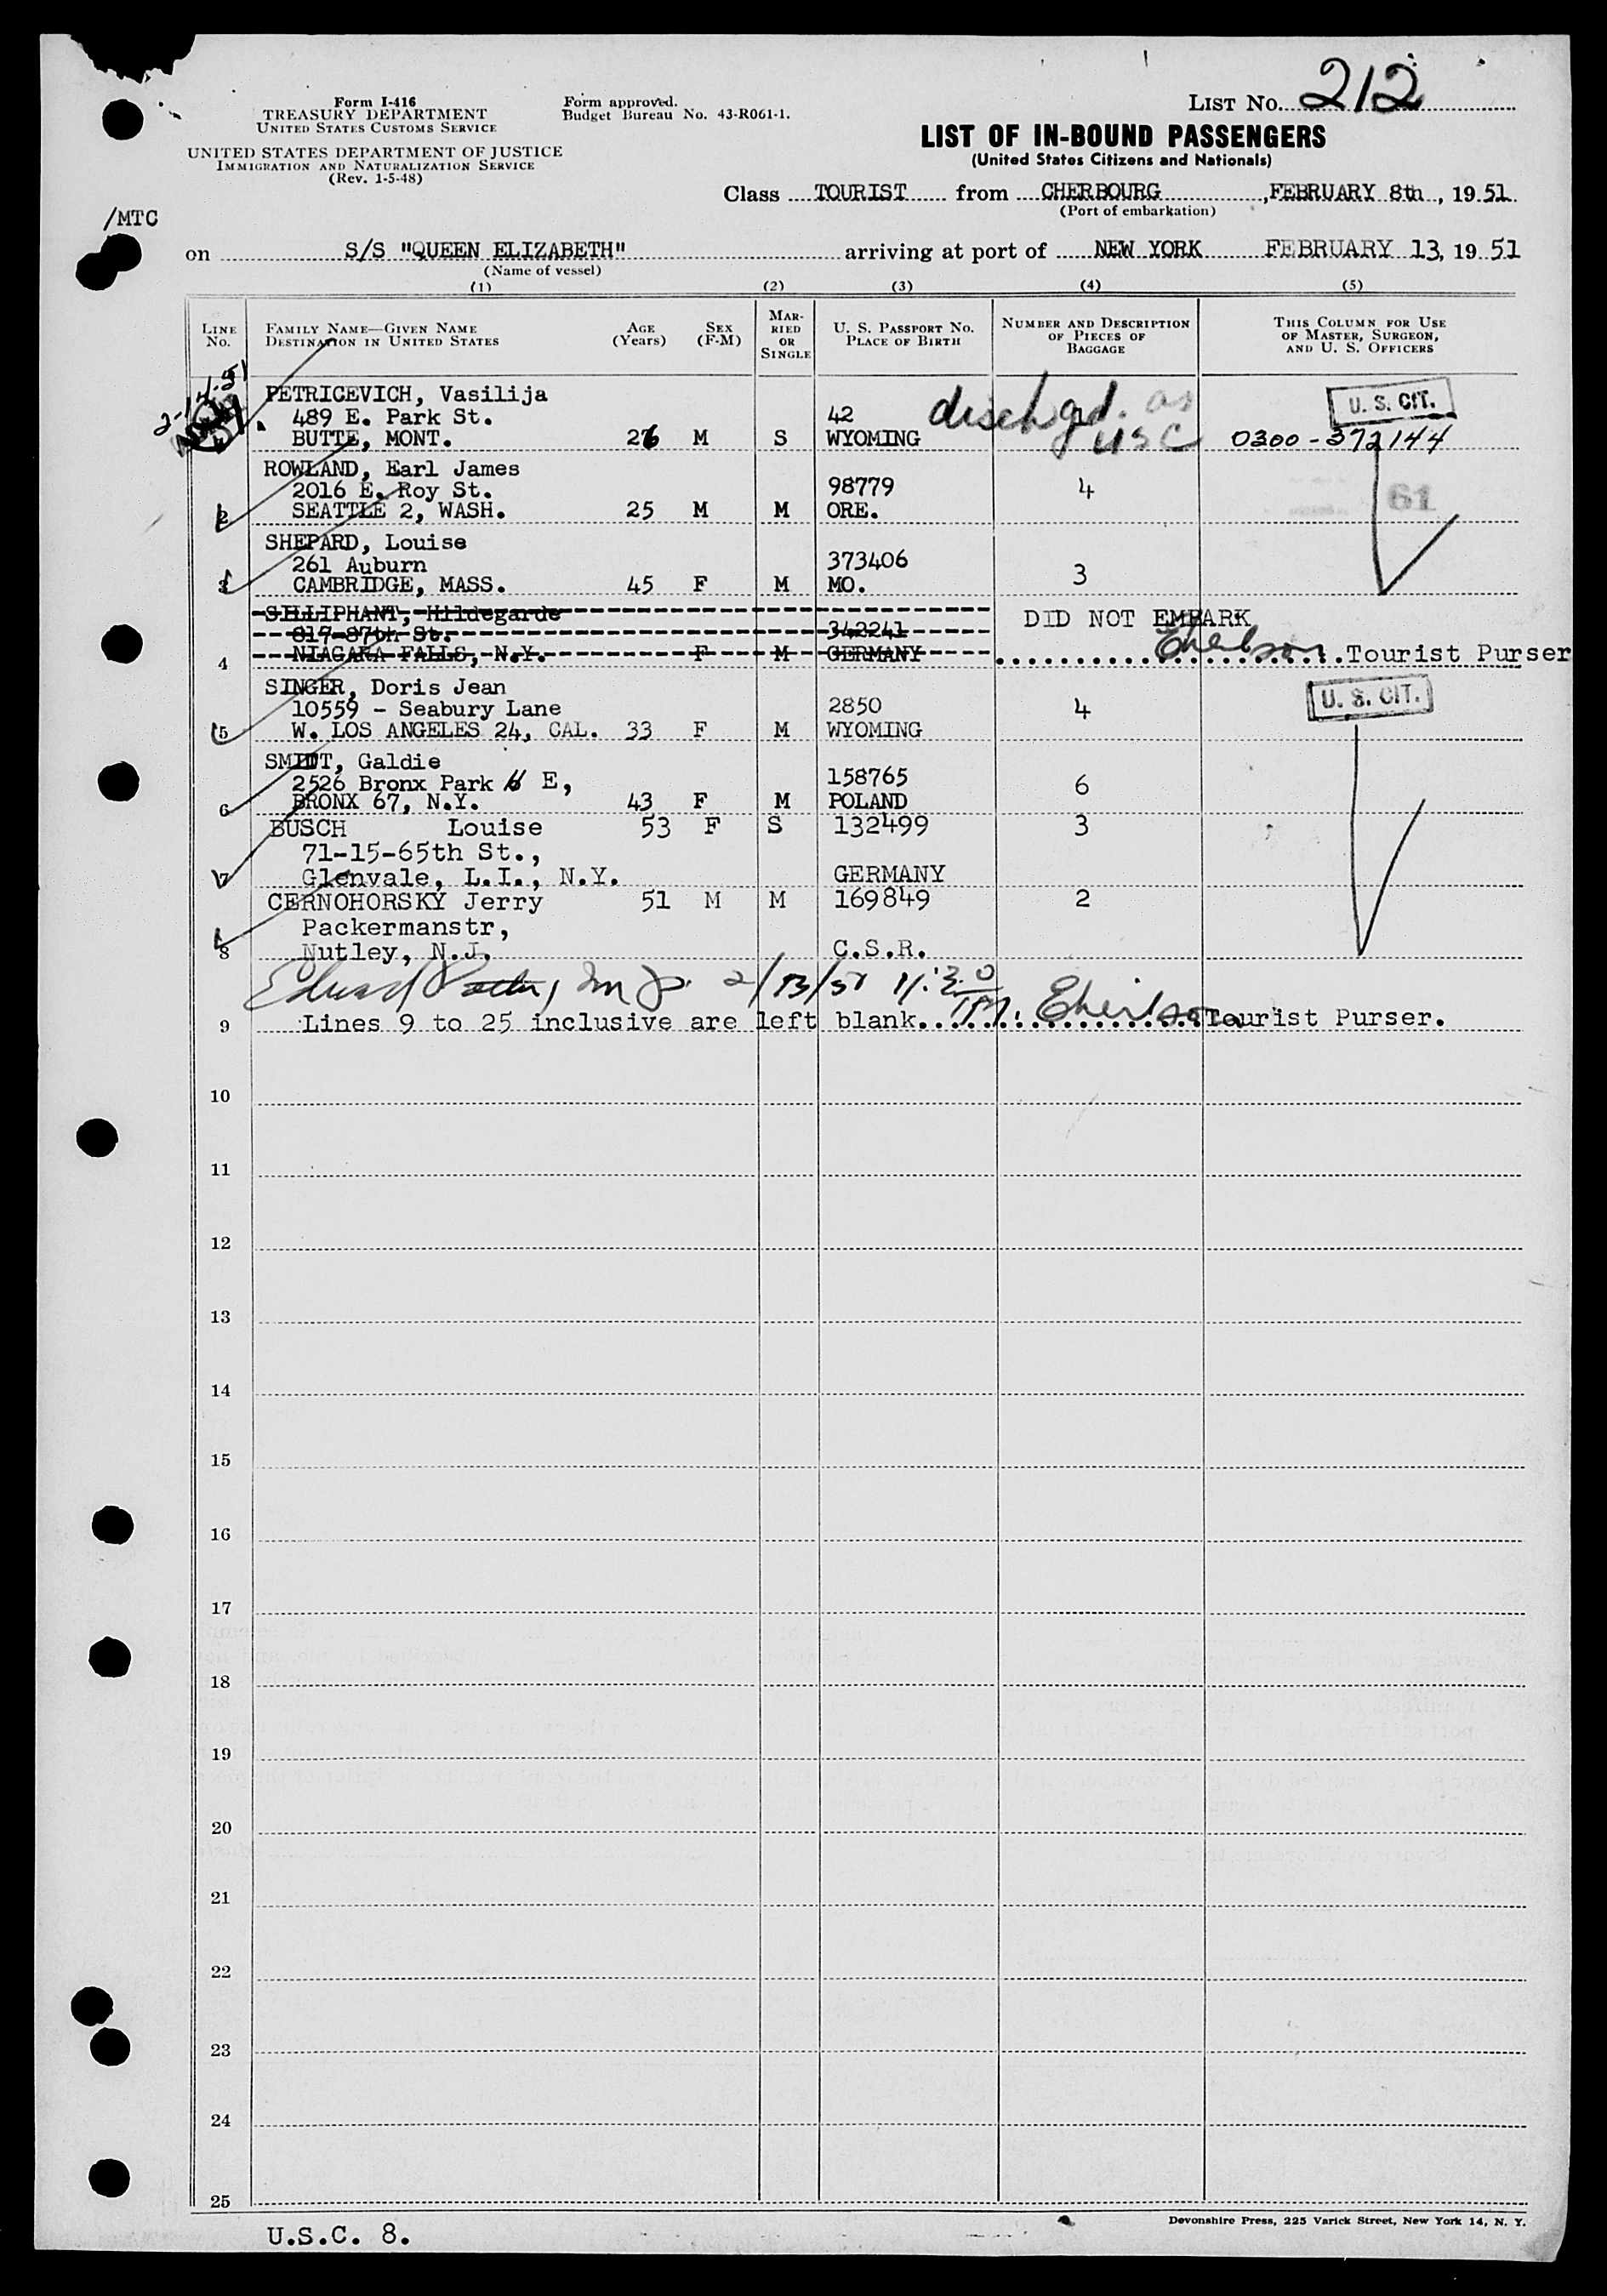 Form I-416
TREASURY DEPARTMENT
UNITED STATES CUSTOMS SERVICE
UNITED STATES DEPARTMENT OF JUSTICE
IMMIGRATION AND NATURALIZATION SERVICE
(Rev. 1-5-48)
Form approved.
Budget Bureau No. 43-R061-1.
LIST No. 212
LIST OF IN-BOUND PASSENGERS
(United States Citizens and Nationals)
Class TOURIST from CHERBOURG, FEBRUARY 8th, 1951
(Port of embarkation)
/MTC
on S/S "QUEEN ELIZABETH" arriving at port of NEW YORK FEBRUARY 13, 1951
(Name of vessel)
(1) (2) (3) (4) (5)
LINE No. FAMILY NAME—GIVEN NAME DESTINATION IN UNITED STATES AGE (Years) SEX (F-M) MARRIED OR SINGLE U. S. PASSPORT No. PLACE OF BIRTH NUMBER AND DESCRIPTION OF PIECES OF BAGGAGE THIS COLUMN FOR USE OF MASTER, SURGEON, AND U. S. OFFICERS
PETRICEVICH, Vasilija U. S. CIT.
489 E. Park St. 42 dischgd. as
BUTTE, MONT. 26 M S WYOMING USC 0300-372144
ROWLAND, Earl James
2016 E. Roy St. 98779 4 61
2 SEATTLE 2, WASH. 25 M M ORE.
SHEPARD, Louise
261 Auburn 373406 3
3 CAMBRIDGE, MASS. 45 F M MO.
SILLIPHANT, Hildegarde DID NOT EMBARK
817-87th St. 342241
4 NIAGARA FALLS, N.Y. F M GERMANY Tourist Purser
SINGER, Doris Jean U. S. CIT.
10559 - Seabury Lane 2850 4
5 W. LOS ANGELES 24, CAL. 33 F M WYOMING
SMIDT, Galdie
2526 Bronx Park E, 158765 6
6 BRONX 67, N.Y. 43 F M POLAND
BUSCH Louise 53 F S 132499 3
71-15-65th St.,
7 Glenvale, L.I., N.Y. GERMANY
CERNOHORSKY Jerry 51 M M 169849 2
Packermanstr,
8 Nutley, N.J. C.S.R.
Edward 2/13/51 11:30
9 Lines 9 to 25 inclusive are left blank. Tourist Purser.
10
11
12
13
14
15
16
17
18
19
20
21
22
23
24
25
Devonshire Press, 225 Varick Street, New York 14, N. Y.
U.S.C. 8.